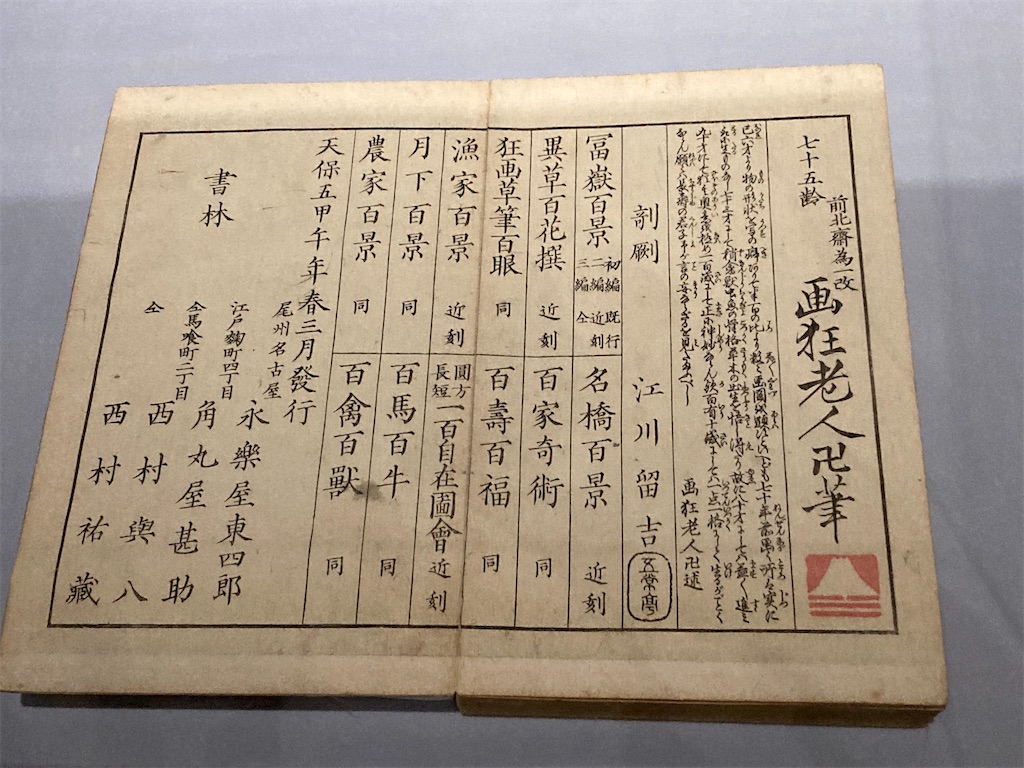 七十五齢
前北齋為一改
画狂老人卍筆
己六才より物の形状を写の癖ありて半百の比より数々画図を顕すといへども七十年前画く所は実に
取に足ものなし七十三才にして稍禽獣虫魚の骨格草木の出生を悟し得たり故に八十才にしては益々進み
九十才にして猶其奥意を極め一百歳にして正に神妙ならん歟百有十歳にしては一点一格にして生るがごとく
ならん願くは長寿の君子予が言の妄ならざるを見たまふべし
画狂老人卍述
剞劂 江川留吉 五常亭
冨嶽百景 初編 既行 二編 近刻 三編 仝
名橋百景 近刻
異草百花撰 近刻
百家奇術 同
狂画草筆百眼 同
百壽百福 同
漁家百景 近刻
圓方長短 一百自在圖會 近刻
月下百景 同
百馬百牛 同
農家百景 同
百禽百獸 同
天保五甲午年春三月發行
尾州名古屋 永樂屋東四郎
江戸麹町四丁目 角丸屋甚助
書林
仝馬喰町二丁目 西村與八
仝 西村祐藏